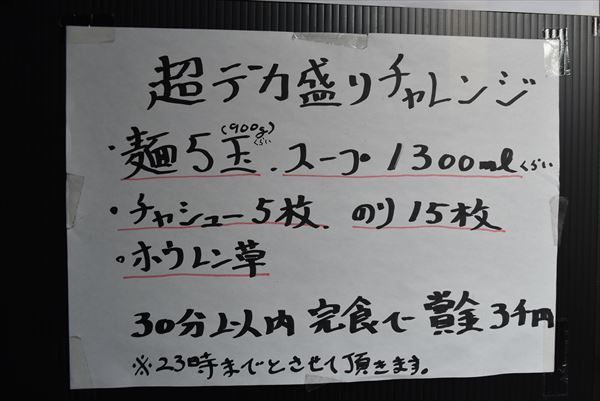 超デカ盛りチャレンジ
・麺5玉(900g)くらい、スープ1300mlくらい
・チャシュー5枚、のり15枚
・ホウレン草
30分以内完食で賞金3千円
※23時までとさせて頂きます。